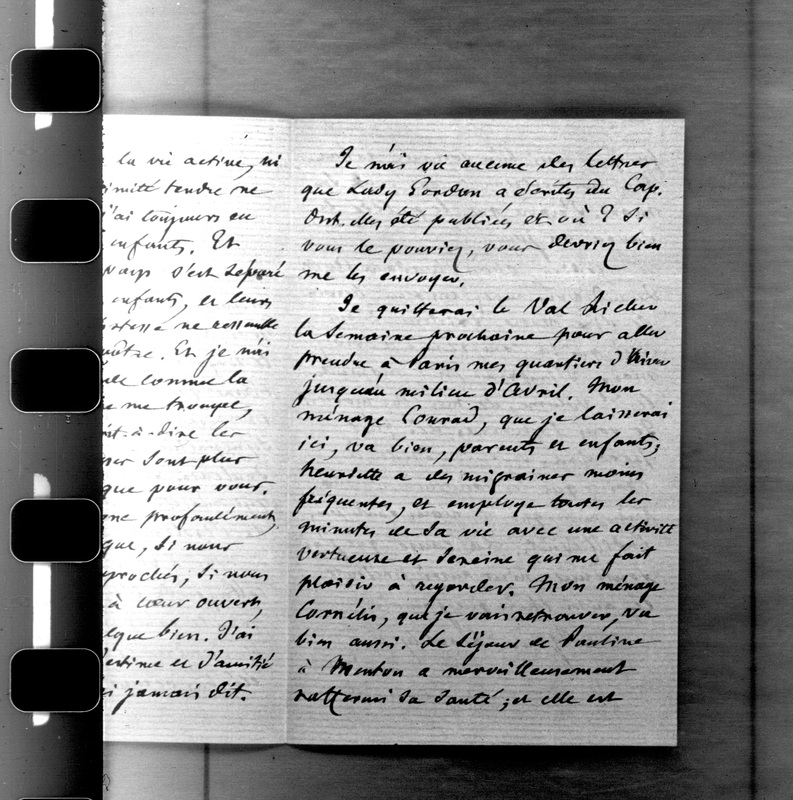 la vie active, ni
imité tendre ne
j'ai toujours eu
enfants. Et
s'est séparé
enfants, et leurs
ne ressemble
nôtre. Et je n'ai
comme la
me trompe,
-à-dire les
sont plus
que pour vous.
profondément,
que, si nous
prochés, si nous
à cœur ouvert,
elque bien. J'ai
estime et d'amitié
jamais dit.
Je n'ai vu aucune des lettres
que Lady Gordon a écrites du Cap.
Ont-elles été publiées et où ? Si
vous le pouviez, vous devriez bien
me les envoyer.
Je quitterai le Val Richer
la semaine prochaine pour aller
prendre à Paris mes quartiers d'hiver
jusqu'au milieu d'avril. Mon
ménage Conrad, que je laisserai
ici, va bien, parents et enfants;
henriette a des migraines moins
fréquentes, et employe toutes les
minutes de sa vie avec une activité
vertueuse et sereine qui me fait
plaisir à regarder. Mon ménage
Cornélis, que je vais retrouver, va
bien aussi. Le séjour de Pauline
à Menton a merveilleusement
raffermi sa santé; et elle est